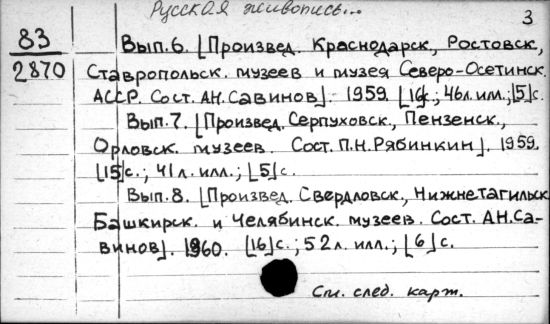 Русская живопись...
3
83
2870
Вып.6. [Произвед. Краснодарск., Ростовск.,
Ставропольск. музеев и музея Северо-Осетинск.
АССР. Сост. А.Н.Савинов]. 1959. [16]с.; 46л. илл.; [5]с.
Вып.7. [Произвед. Серпуховск., Пензенск.,
Орловск. музеев. Сост. П.Н.Рябинкин]. 1959.
[15]с.; 41л. илл.; [5]с.
Вып.8. [Произвед. Свердловск., Нижнетагильск.
Башкирск. и Челябинск. музеев. Сост. А.Н.Са-
винов]. 1960. [16]с.; 52л. илл.; [6]с.
См. след. карт.